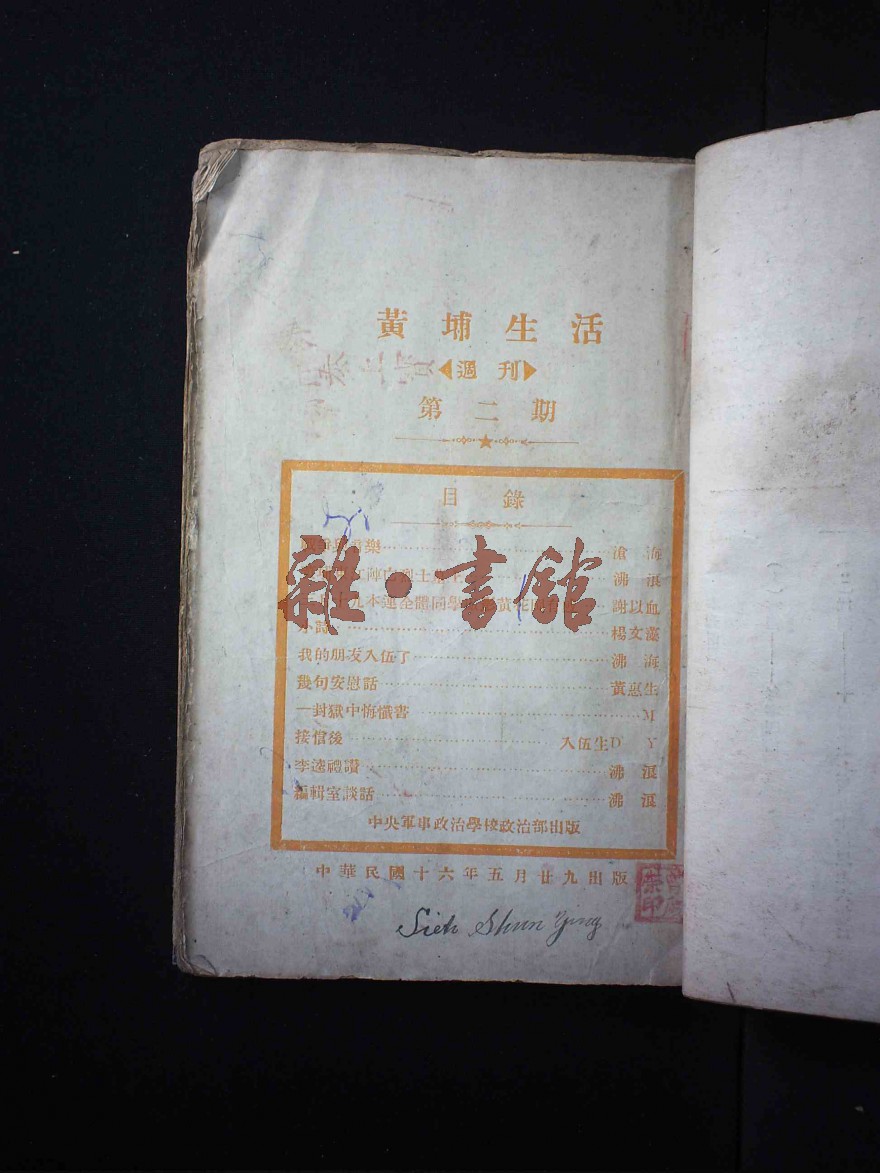 黃埔生活
週刊
第二期
目錄
樂 滄海
烈士 沸浪
九本連全體同學 黃花 謝以血
小 楊文藻
我的朋友入伍了 沸海
幾句安慰話 黃惠生
一封獄中悔懺書 M
接信後 入伍生D Y
李遠禮讚 沸浪
編輯室談話 沸浪
中央軍事政治學校政治部出版
中華民國十六年五月廿九出版
Sieh Shun Ying
雜·書館